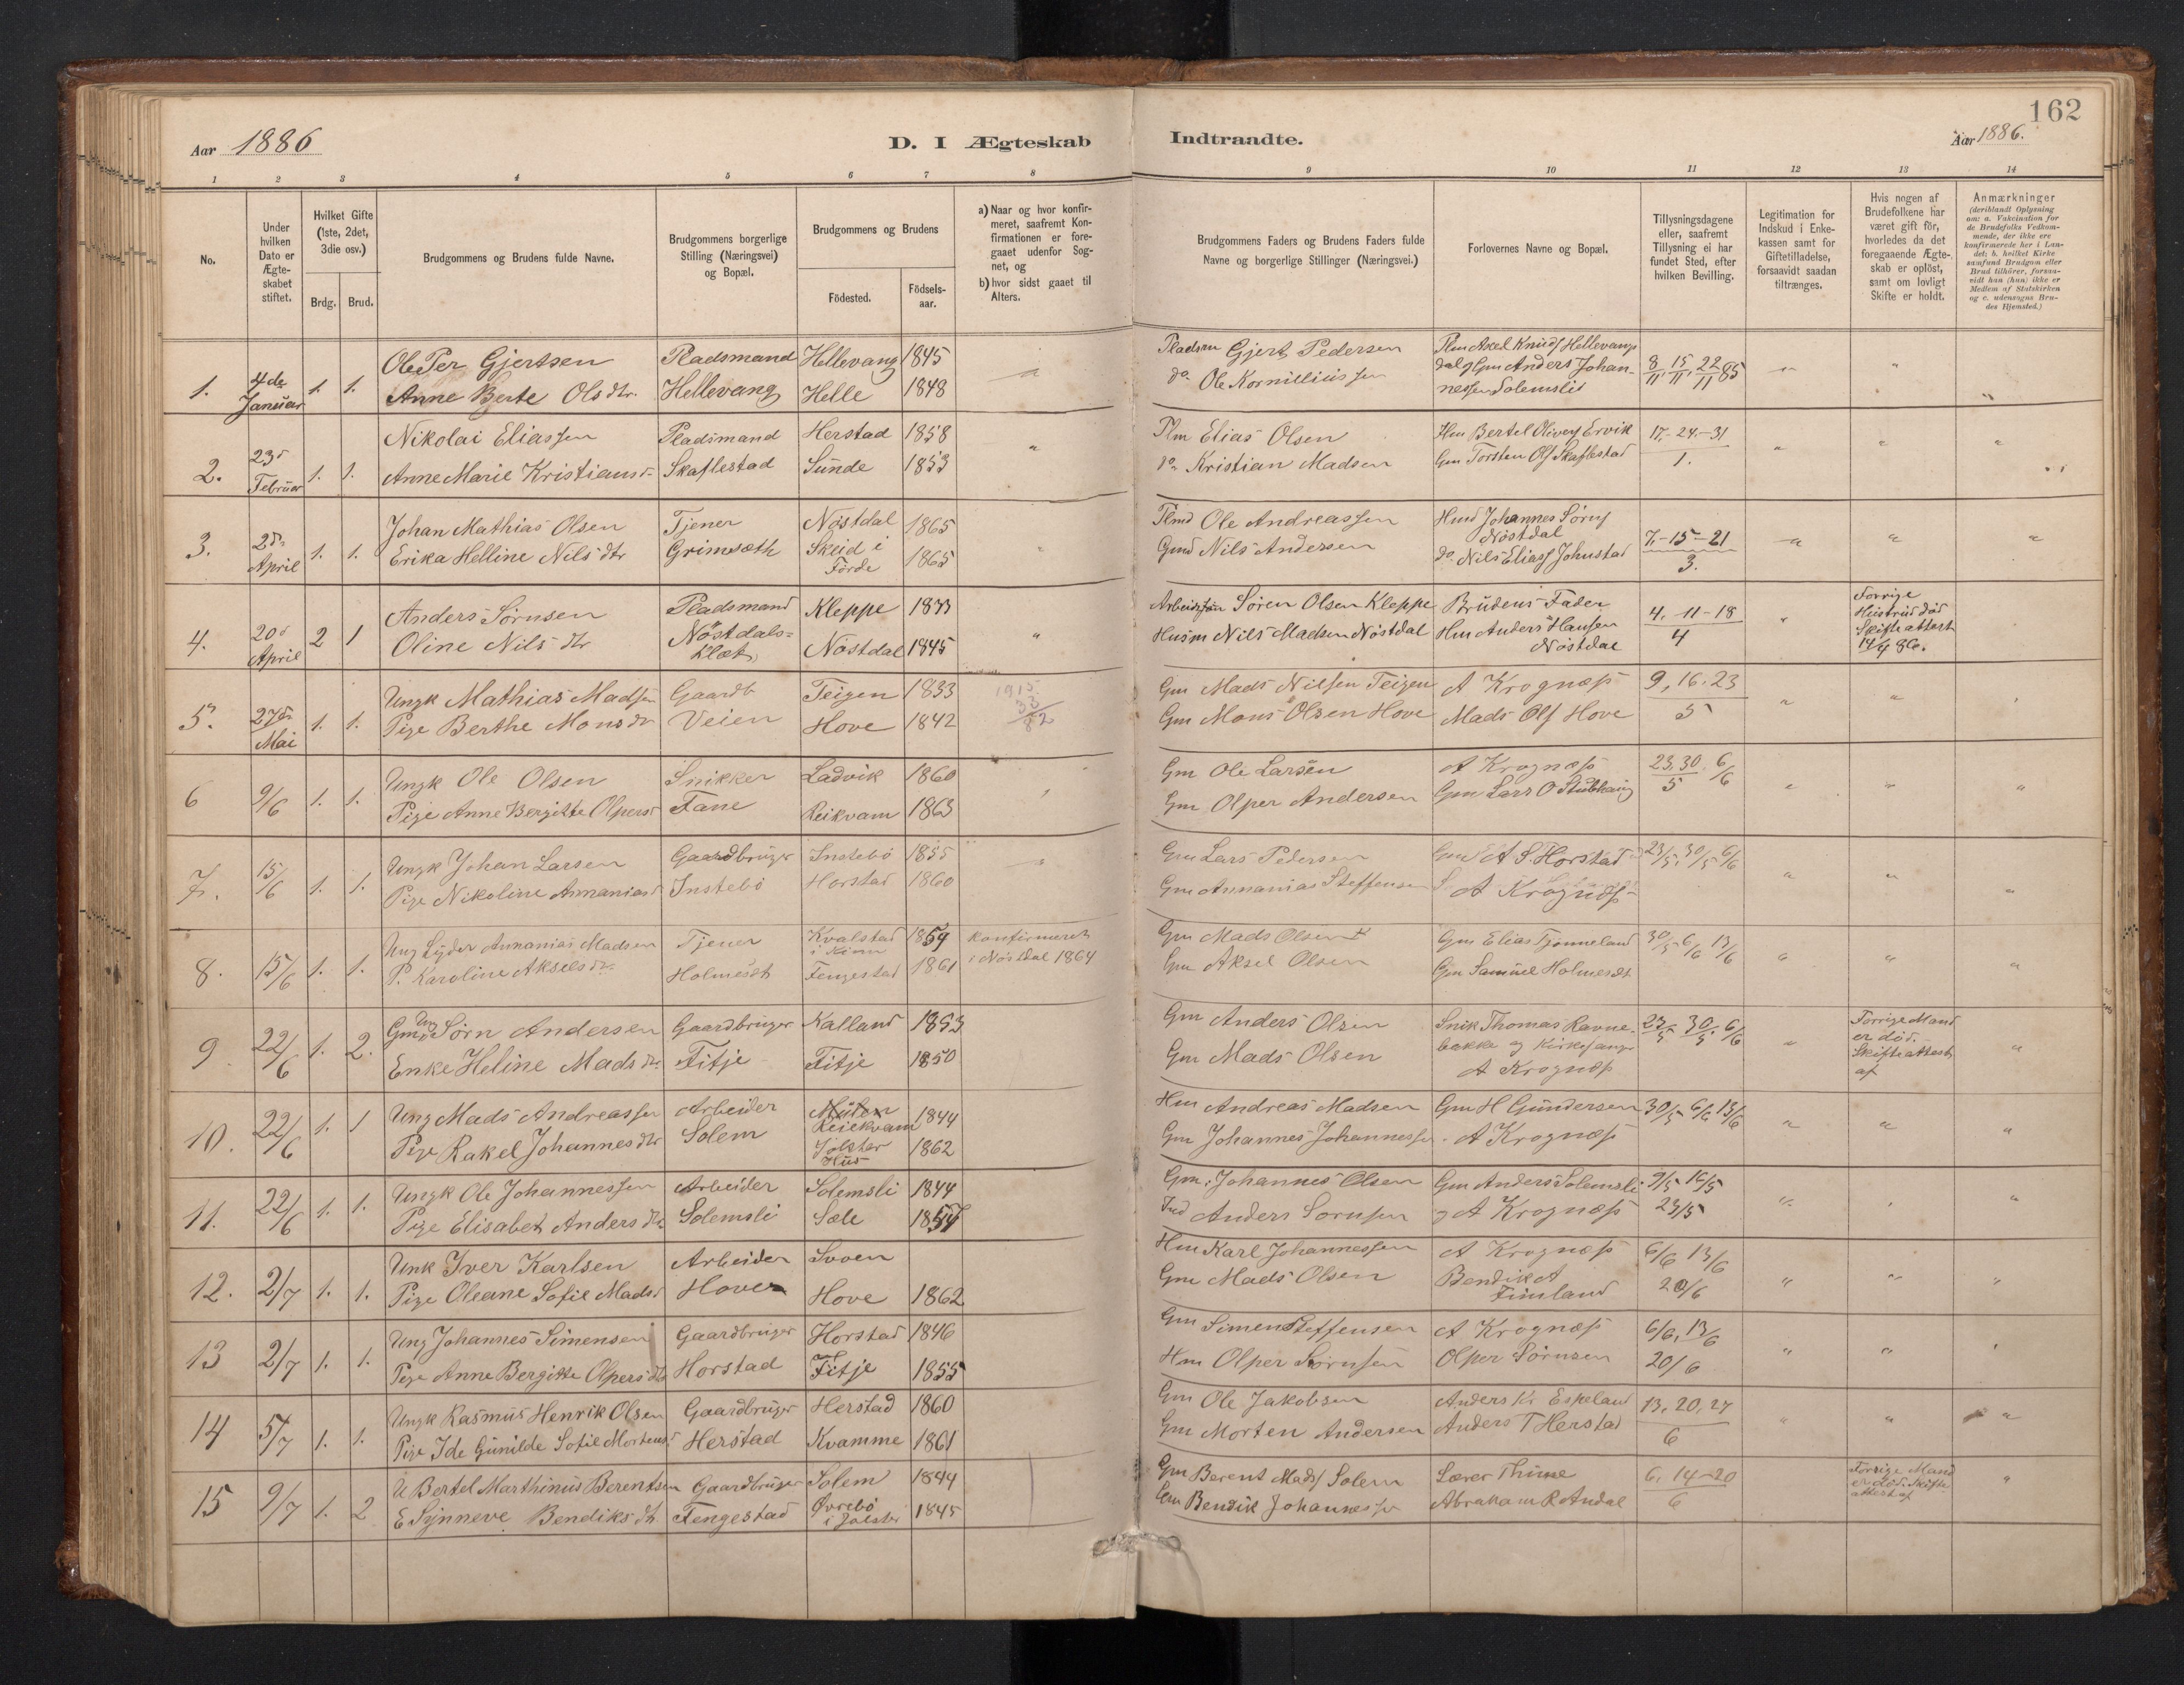 162
Aar 1886
D. I Ægteskab Indtraadte.
Aar 1886.
1 2 3 4 5 6 7 8 9 10 11 12 13 14
No.
Under hvilken Dato er Ægteskabet stiftet.
Hvilket Gifte (1ste, 2det, 3die osv.)
Brdg. Brud.
Brudgommens og Brudens fulde Navne.
Brudgommens borgerlige Stilling (Næringsvei) og Bopæl.
Brudgommens og Brudens
Födested.
Födsels-aar.
a) Naar og hvor konfirmeret, saafremt Konfirmationen er foregaaet udenfor Sognet, og
b) hvor sidst gaaet til Alters.
Brudgommens Faders og Brudens Faders fulde Navne og borgerlige Stillinger (Næringsvei.)
Forlovernes Navne og Bopæl.
Tillysningsdagene eller, saafremt Tillysning ei har fundet Sted, efter hvilken Bevilling.
Legitimation for Indskud i Enkekassen samt for Giftetilladelse, forsaavidt saadan tiltrænges.
Hvis nogen af Brudefolkene har været gift för, hvorledes da det foregaaende Ægteskab er oplöst, samt om lovligt Skifte er holdt.
Anmærkninger (deriblandt Oplysning om: a. Vakcination for de Brudefolks Vedkommende, der ikke ere konfirmerede her i Landet; b. hvilket Kirkesamfund Brudgom eller Brud tilhörer, forsaavidt han (hun) ikke er Medlem af Statskirken og c. udensogns Brudes Hjemsted.)
1. 4de Januar 1. 1. Ole Per Gjertsen Pladsmand Hellevang 1845 Pladsm Gjert Pedersen Plm Axel Knuds Hellevang
Anne Berte Olsdtr. Hellevang Helle 1848 do Ole Kornilliussen dal og Gm Anders Johannessen Solemsli 8/11, 15/11, 22/11 85
2. 23d Februar 1. 1. Nikolai Eliassen Pladsmand Herstad 1858 Plm Elias Olsen Hm Bertel Olivers Ervik 17.-24.-31
Anne Marie Kristiansd Skaflestad Sunde 1853 do Kristian Madsen Gm Torsten Ols Skaflestad 1.
3. 2d April 1. 1. Johan Mathias Olsen Tjener Nöstdal 1865 Plmd Ole Andreassen Hmd Johannes Sörns Nöstdal 7.-15-21
Erika Helline Nilsdtr Grimsæth Skeid i Förde 1865 Gmd Nils Andersen do Nils Elias Johnstad 3.
4. 20d April 2 1 Anders Sörnsen Pladsmand Kleppe 1833 Søren Olsen Kleppe Brudens Fader 4.-11-18
Oline Nilsdtr Nöstdals= Klæt Nöstdal 1845 Husm Nils Madsen Nöstdal Hm Anders Hansen Nöstdal 4
Forrige Hustrud död Skifteattest 14/4 86.
5. 27d Mai 1. 1. Ungk Mathias Madsen Gaardb Teigen 1833 1915 33 82 Gm Mads Nilsen Teigen A Krognæss 9, 16. 23
Pige Berthe Monsdtr Veien Hove 1842 Gm Mons Olsen Hove Mads Ols Hove 5
6 9/6 1. 1. Ungk Ole Olsen Snikker Ladvik 1860 Gm Ole Larsen A Krognæss 23.30. 5 6/6
Pige Anne Bergitte Olpersd Fane Reikvam 1863 Gm Olper Andersen Gm Lars O Stubhaug
7. 15/6 1. 1. Ungk Johan Larsen Gaardbruger Instebö 1855 Gm Lars Pedersen Gm A S. Horstad 23/5. 30/5 6/6
Pige Nikoline Annaniasd Instebö Horstad 1860 Gm Annanias Steffensen A Krognæss
8. 15/6 1. 1. Ung Lyder Annanias Madsen Tjener Kvalstad i Kinn 1859 Konfirmeret i Nöstdal 1864 Gm Mads Olsen Gm Elias Tjønneland 30/5 6/6 13/6
P. Karoline Akselsdtr. Holmesæt Fengestad 1861 Gm Aksel Olsen Gm Samuel Holmesæt
9. 22/6 1. 2. Gm Ung Sörn Andersen Gaardbruger Kalland 1853 Gm Anders Olsen Snik Thomas Ravnebakke og Kirkesanger A Krognæss 23/5 30/5 6/6
Enke Heline Madsdtr. Fitje Fitje 1850 Gm Mads Olsen
Forrige Mand er död. Skifteattest af
10. 22/6 1. 1 Ung Mads Andreassen Arbeider Reiekvam 1844 Hm Andreas Madsen Gm H Gundersen 30/5 6/6 13/6
Pige Rakel Johannesdtr Solem Jölster Hus 1862 Gm Johannes Johannessen A Krognæss
11. 22/6 1. 1. Ungk Ole Johannessen Arbeider Solemsli 1844 Gm. Johannes Olsen Gm Anders Solemsli 9/5 16/5
Pige Elisabet Andersdtr. Solemsli Sæle 1857 Ind Anders Sornsen og A Krognæss 23/5
12. 2/7 1. 1. Unk Iver Karlsen Arbeider Svoen Hm Karl Johannessen A Krognæss 6/6 13/6
Pige Oleane Sofie Madsd Hoven Hove 1862 Gm Mads Olsen Bendik A Fimland 20/6
13 2/7 1. 1. Ung Johannes Simensen Gaardbruger Horstad 1846 Gm Simen Steffensen A Krognæss 6/6, 13/6
Pige Anne Bergitte Olpersdtr Horstad Fitje 1855 Hm Olper Sörnsen Olper Sörnsen 20/6
14 5/7 1. 1. Ungk Rasmus Henrik Olsen Gaardbruger Herstad 1860 Gm Ole Jakobsen Anders Kr Espeland 13, 20, 27
Pige Ide Gunilde Sofie Mortensd Herstad Kvamme 1861 Gm Morten Andersen Anders T Herstad 6
15 9/7 1. 2 U Bertel Marthinus Berentsen Gaardbruger Solem 1844 Gm Berent Mads Solem Lærer Thune 6. 14-20
E Synneve Bendiksdtr Fengestad Övrebö i Jölster 1845 Gm Bendik Johannessen Abraham R Andal 6
Forrige Mand er död. Skifteattest af